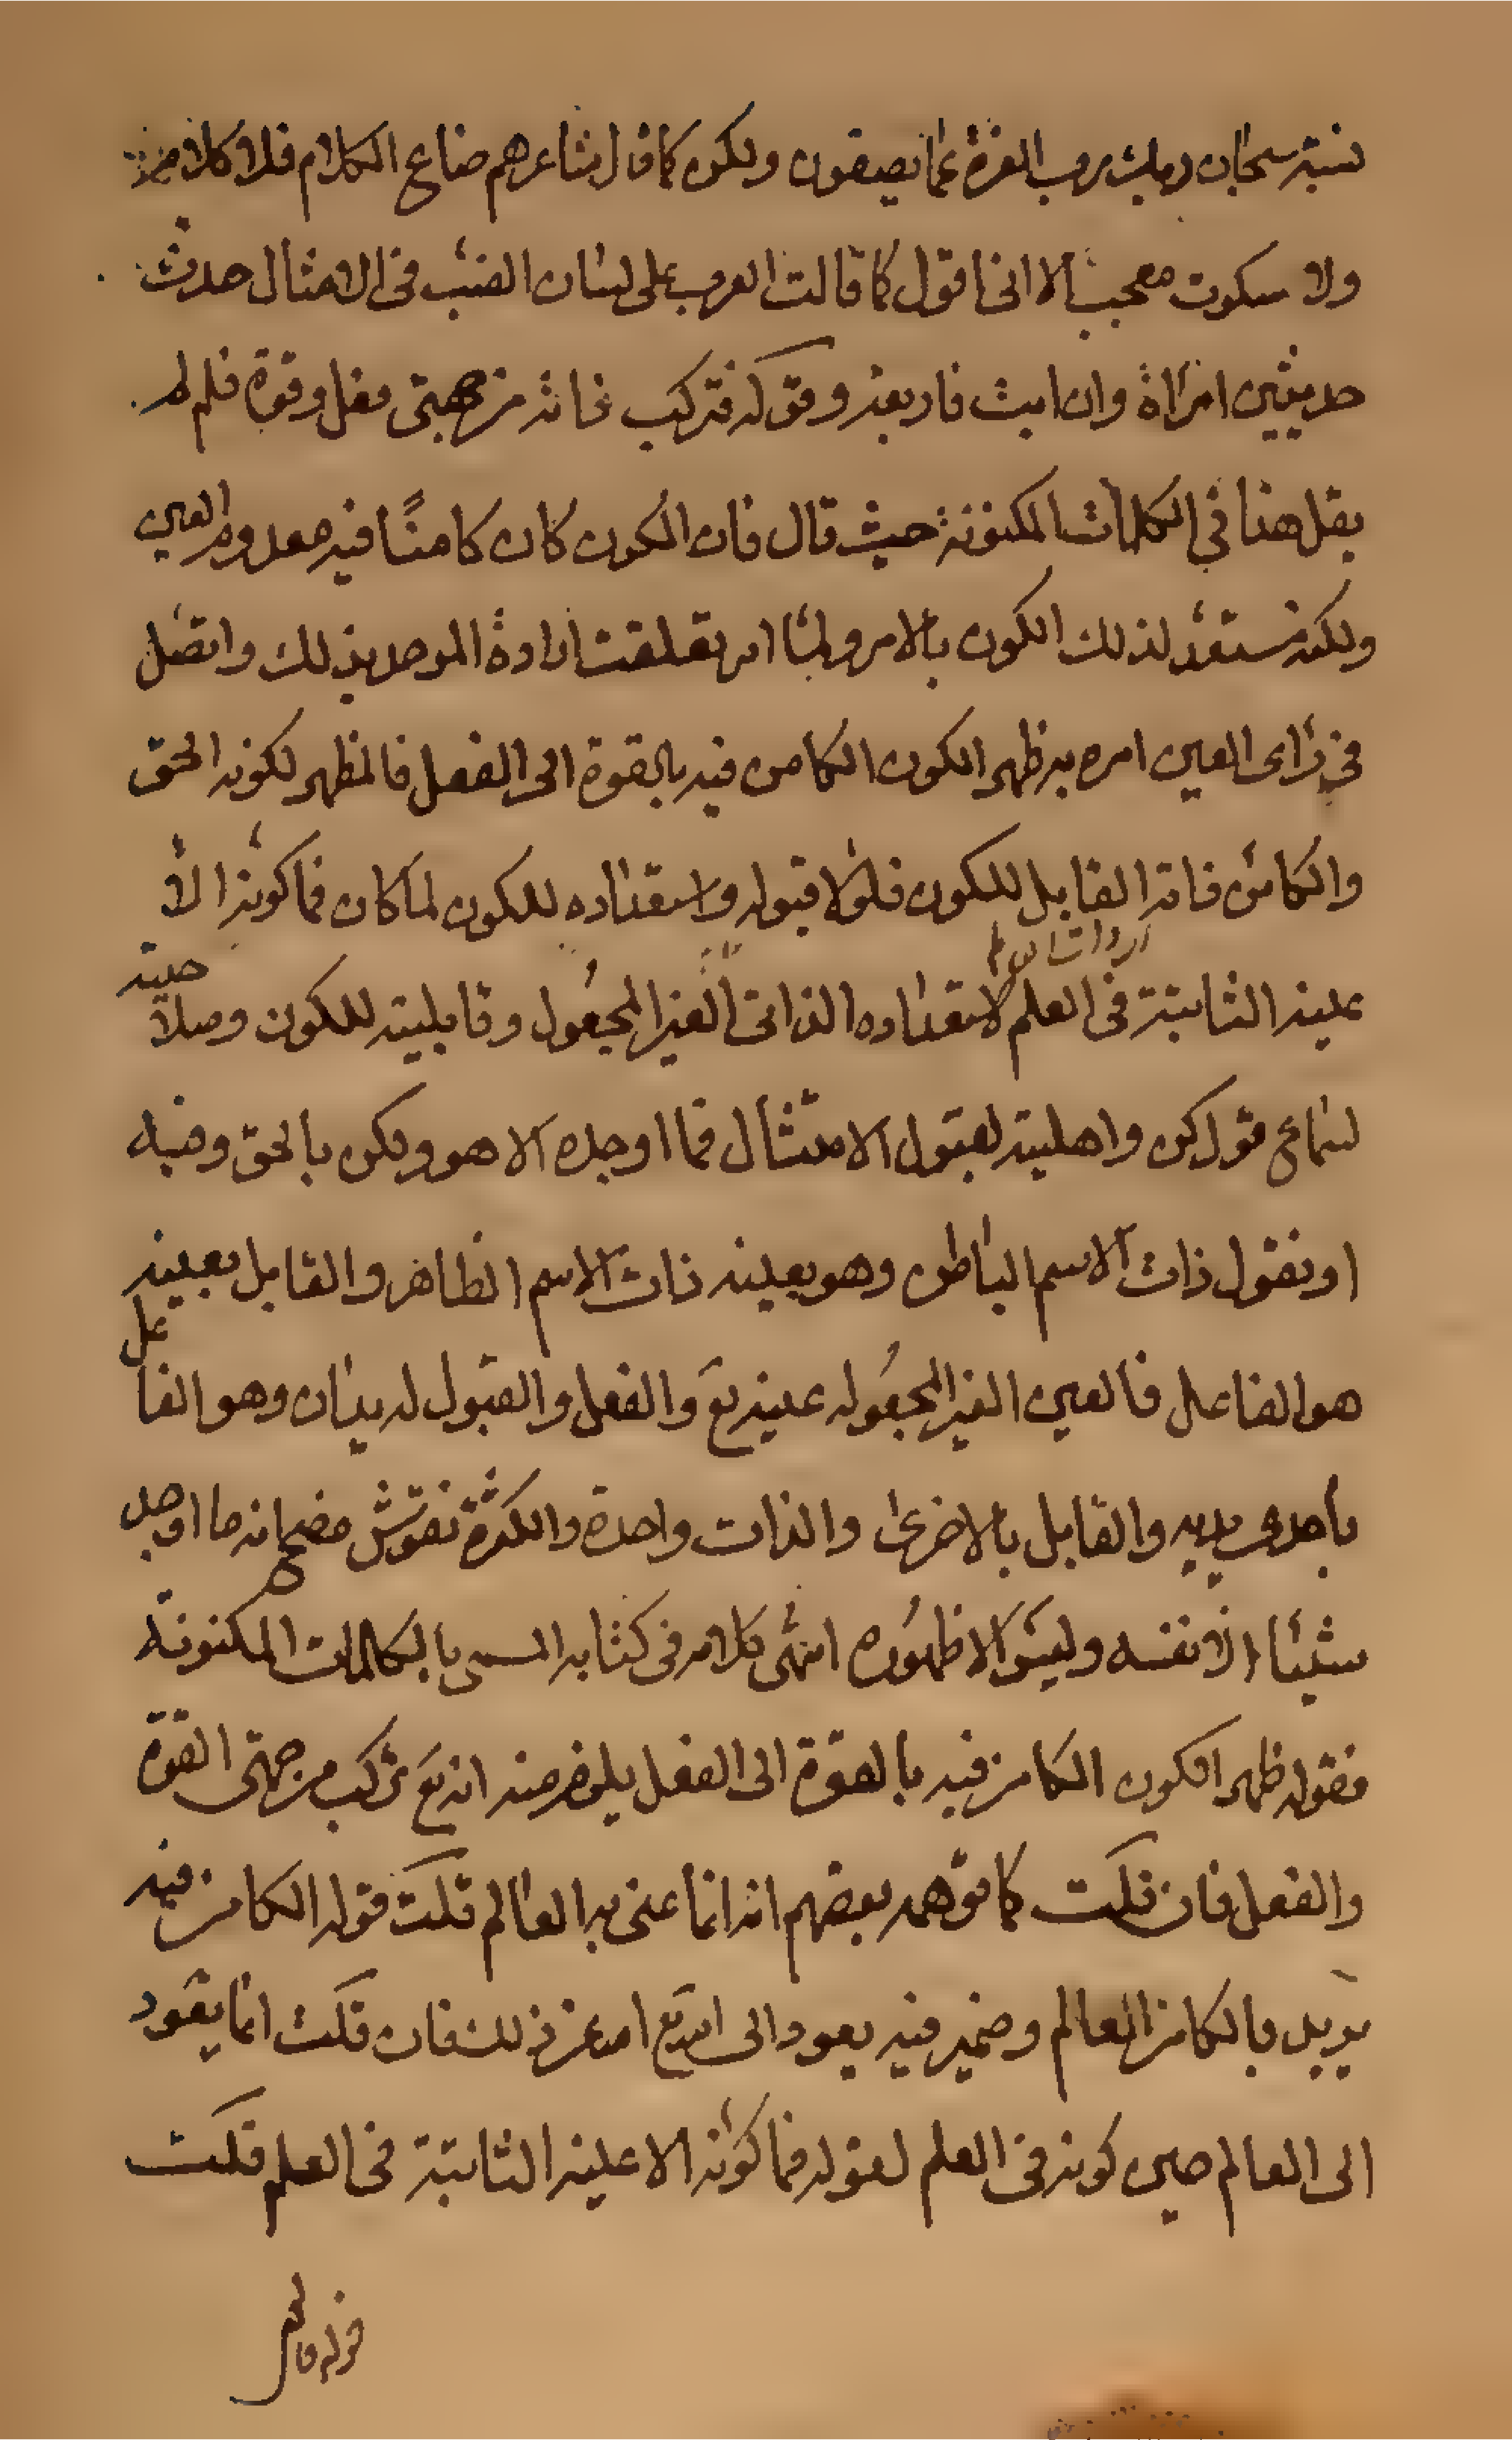 نسبته سبحان ربك رب العزة عما يصفون ولكن كما قال شاعرهم ضاع الكلام فلا كلام
ولا سكوت معجب الا اننى اقول كما قالت العرب على لسان الضب فى الامثال حدث
حديثين امراة وان ابت فاربعة وقوله فتركب فانه من جهتى فعل وقوة فلم لم
يقل هذا في الكلمات المكنونة حيث قال فان الكون كان كامنًا فيه معدوم العين
ولكنه مستعد لذلك الكون بالامر ولما امر تعلقت ارادة الموجد بذلك واتصل
في راى العين امره به ظهر الكون الكامن فيه بالقوة الى الفعل فالمظهر لكونه الحق
والكائن ذاته القابل للكون فلولا قبوله واستعداده للكون لما كان فما كونه الا
عينه الثابتة فى العلم لاستعداده الذاتى الغير المجعول وقابليته للكون وصلاحيته
لسماع قول كن واهليته لقبول الامتثال فما اوجده الا هو ولكن بالحق وفيه
او نقول ذات الاسم الباطن وهو بعينه ذات الاسم الظاهر والقابل بعينه
هو الفاعل فالعين الغير المجعوله عينه تع والفعل والقبول له يدان وهو الفاعل
باحدى يديه والقابل بالاخرى والذات واحدة والكثرة نقوش فصح انه ما اوجد
شيئا الا نفسه وليس الا ظهوره انتهى كلامه فى كتابه المسمى بالكلمات المكنونة
فقوله ظهر الكون الكامن فيه بالقوة الى الفعل يلزم منه انه تع تركب من جهتى القوة
والفعل فان قلت كما توهمه بعضهم انه انما عنى به العالم قلت قوله الكامن فيه
يريد بالكامن العالم وضمير فيه يعود الى الله تع الله عن ذلك فان قلت انما يعود
الى العالم حين كونه فى العلم لقوله فما كونه الا عينه الثابتة فى العلم قلت